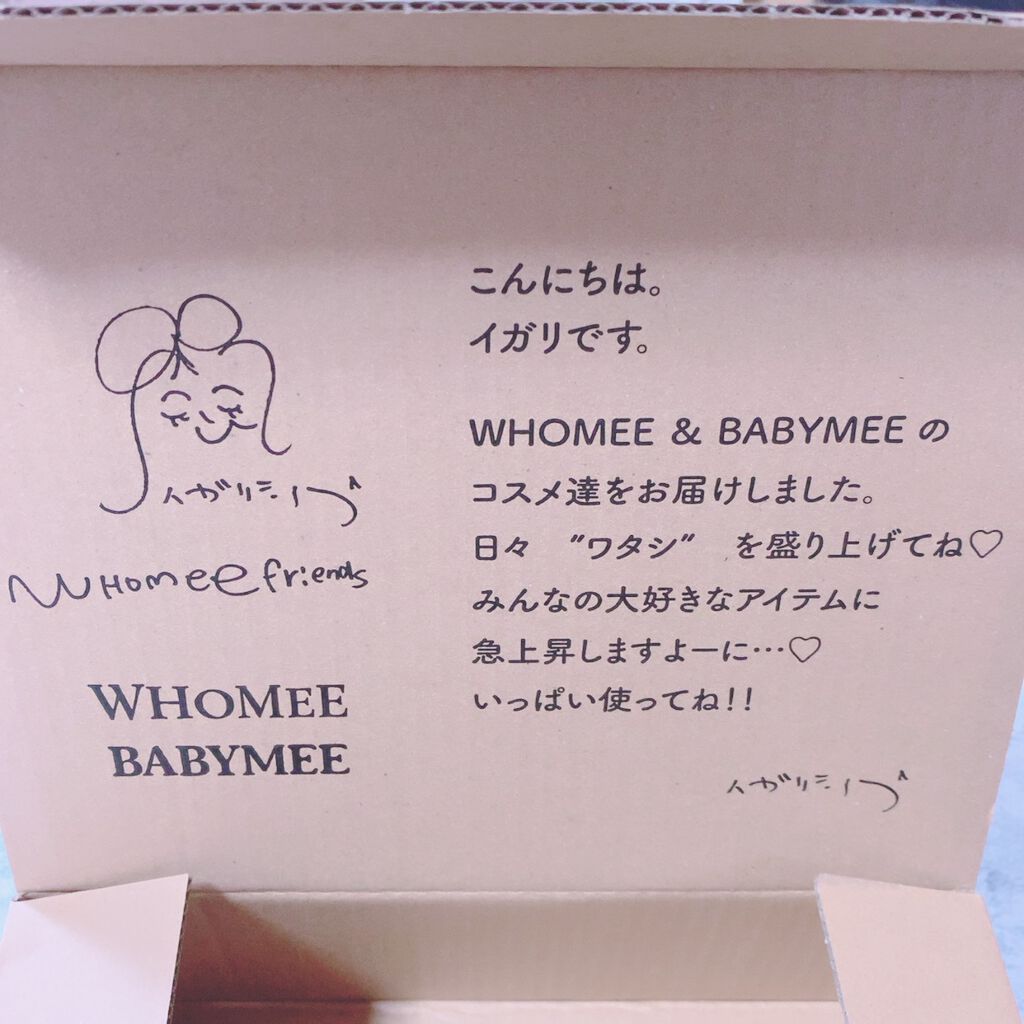 こんにちは。
イガリです。
WHOMEE & BABYMEE の
コスメ達をお届けしました。
日々 〃ワタシ〃 を盛り上げてね♡
みんなの大好きなアイテムに
急上昇しますよーに…♡
いっぱい使ってね！！
イガリシノブ
イガリシノブ
WHomee friends
WHOMEE
BABYMEE